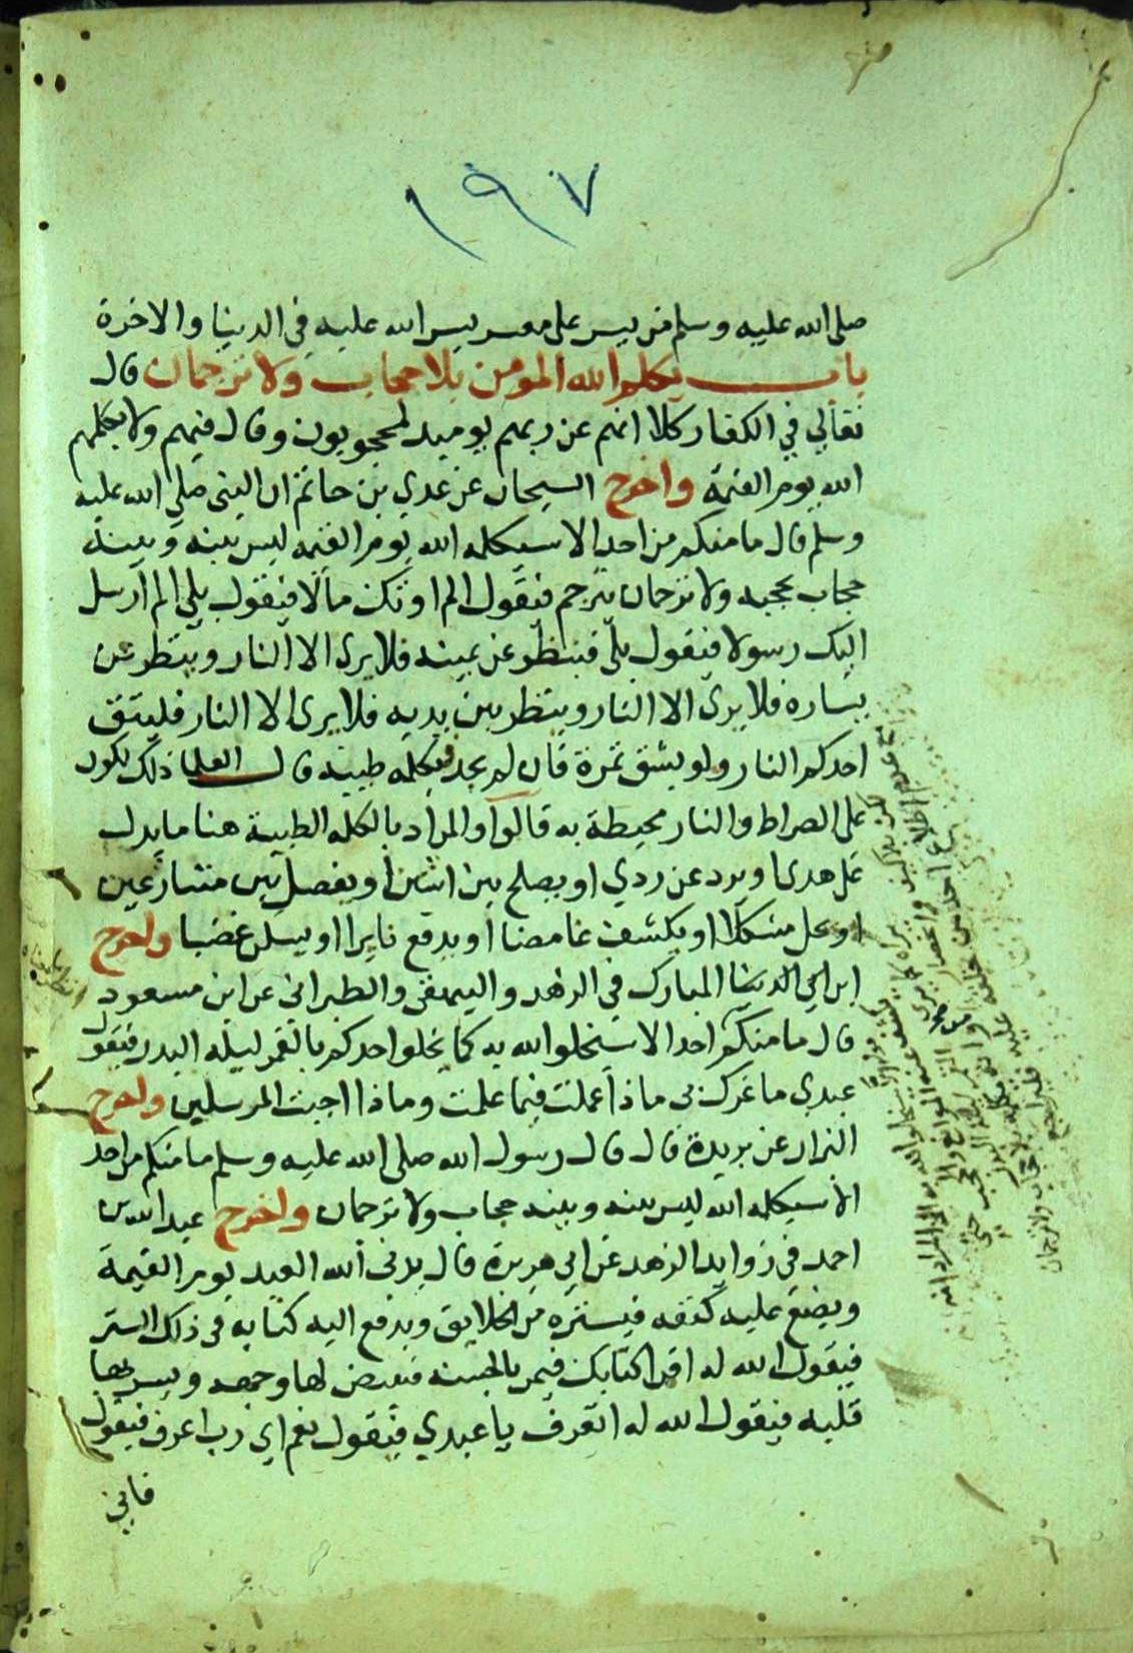 ١٩٧
صلى الله عليه وسلم من يسر على معسر يسر الله عليه في الدنيا والاخرة
باب يكلم الله المومن بلا حجاب ولا ترجمان قال
تعالى في الكفار كلا انهم عن ربهم يوميد لمحجوبون وقال فيهم ولا يكلمهم
الله يوم القيمة واخرج الشيخان عن عدي بن حاتم ان النبي صلى الله عليه
وسلم قال ما منكم من احد الا سيكلمه الله يوم القيمه ليس بينه وبينه
حجاب يحجبه ولا ترجمان يترجم فيقول الم اوتك مالا فيقول بلى الم ارسل
اليك رسولا فيقول بلى فينظر عن يمينه فلا يرى الا النار وينظر عن
يساره فلا يرى الا النار وينظر بين يديه فلا يرى الا النار فليتق
احدكم النار ولو بشق تمرة فان لم يجد فبكلمه طيبه قال العلما ذلك يكون
على الصراط والنار محيطة به قالوا والمراد بالكلمه الطيبة هنا ما يدل
على هدى او يرد عن ردي او يصلح بين اثنين او يفصل بين متنازعين
او يحل مشكلا او يكشف غامضا او يدفع ثايرا او يسكن غضبا واخرج
ابن ابي الدنيا المبارك في الزهد والبيهقى والطبراني عن ابن مسعود
قال ما منكم احد الا سيخلوا الله به كما يخلوا احدكم بالقمر ليله البدر فيقول
عبدي ما غرك بي ماذا عملت فيما علمت وماذا اجبت المرسلين واخرج
البزار عن بريدة قال قال رسول الله صلى الله عليه وسلم ما منكم من احد
الا سيكلمه الله ليس بينه وبينه حجاب ولا ترجمان واخرج عبد الله بن
احمد في زوايد الزهد عن ابي هريرة قال يدنى الله العبد يوم القيمة
ويضع عليه كنفه فيستره من الخلايق ويدفع اليه كتابه في ذلك الستر
فيقول الله له اقرا كتابك فيمر بالحسنه فيبيض لها وجهه ويسر بها
قلبه فيقول الله له اتعرف يا عبدي فيقول نعم اي رب اعرف فيقول
فاني